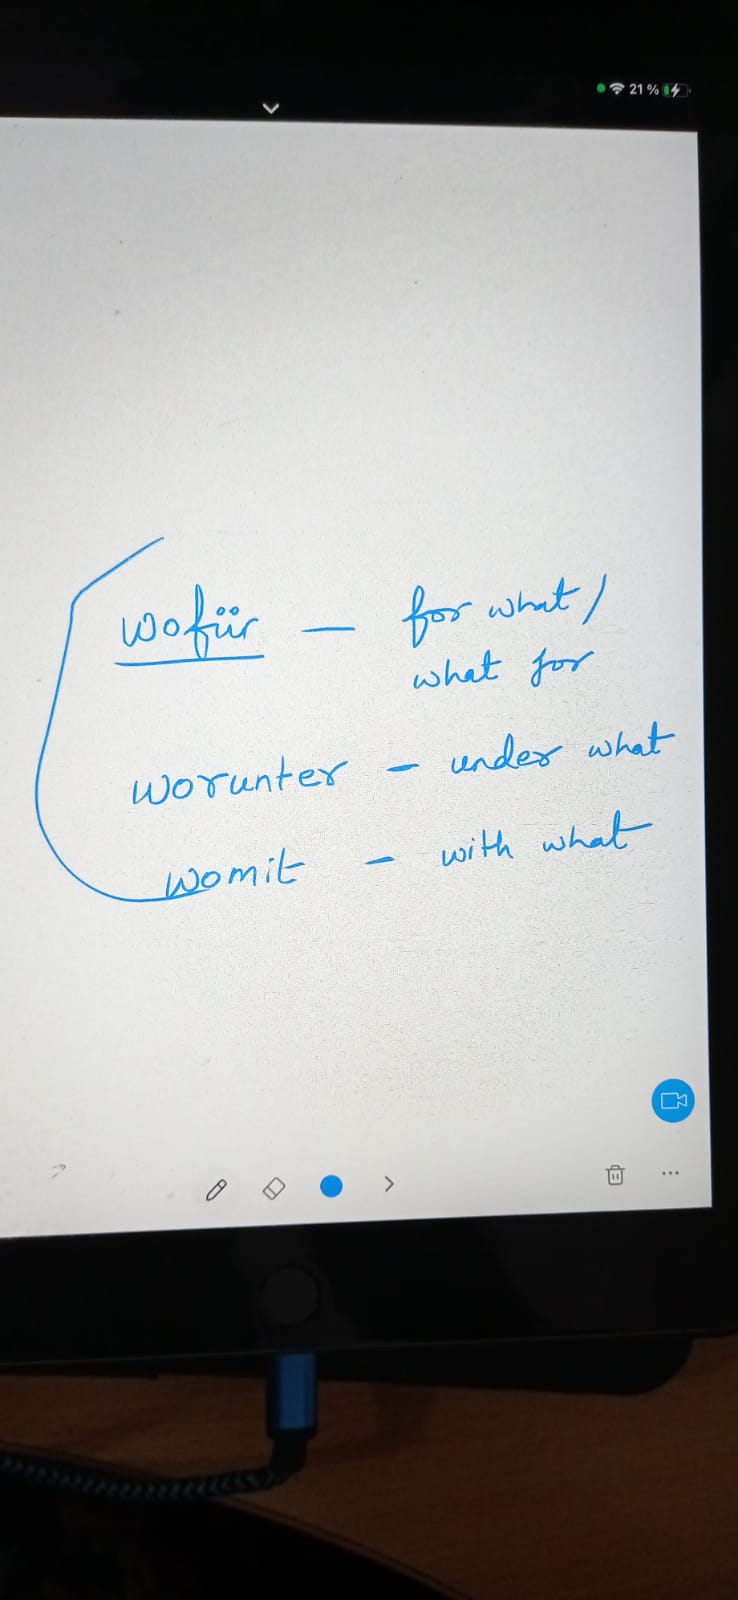 21 %
wofür — for what /
what for
worunter - under what
womit - with what